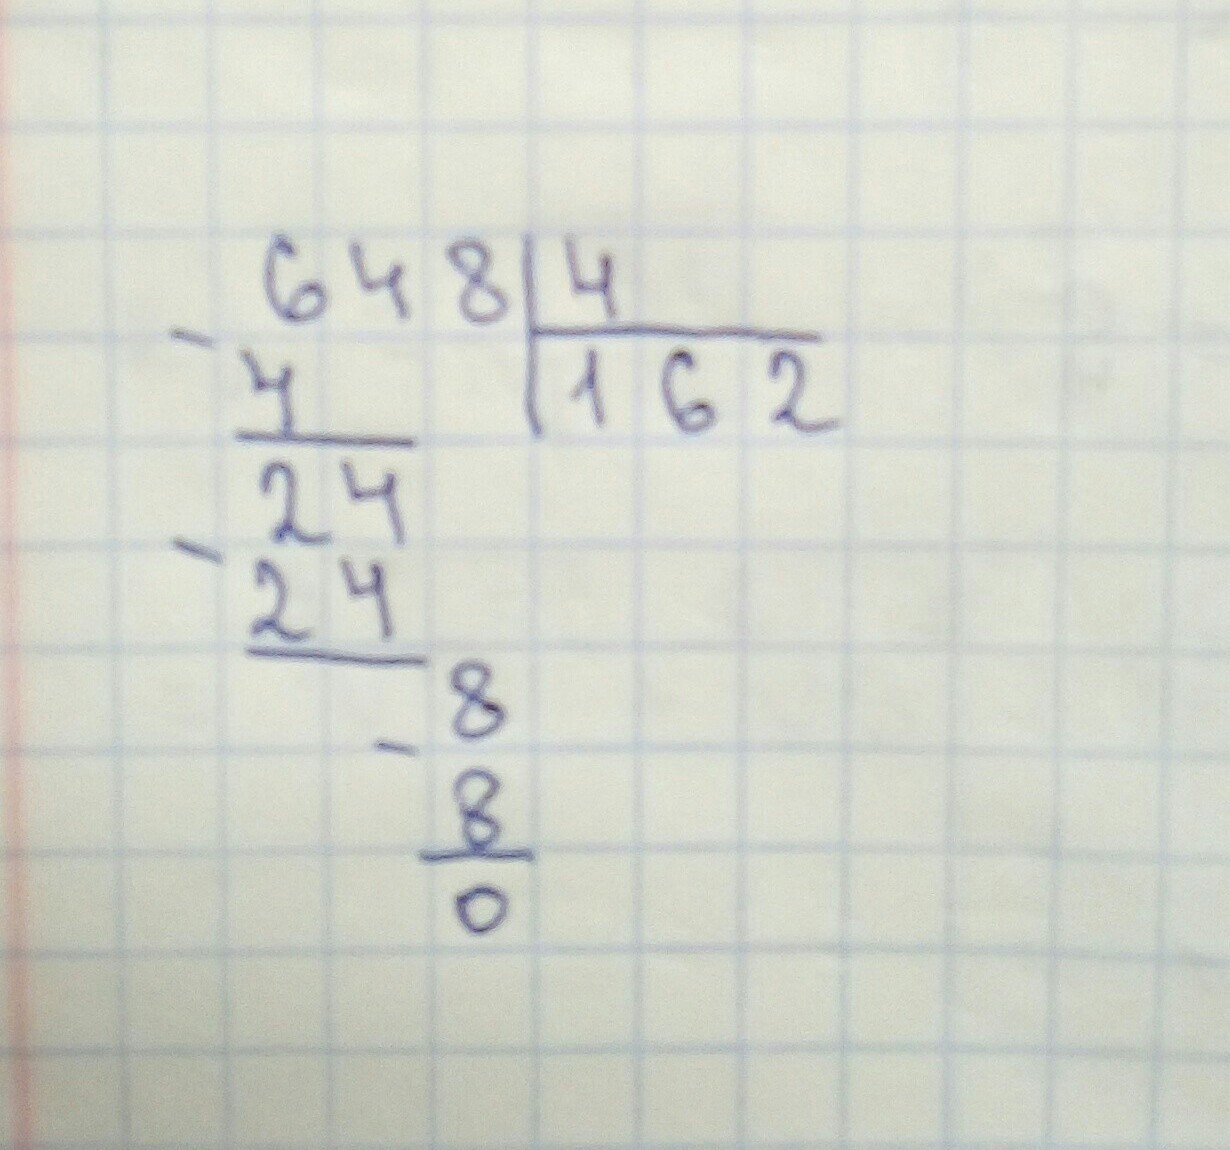 648 | 4
- 4 | 162
24
- 24
8
- 8
0